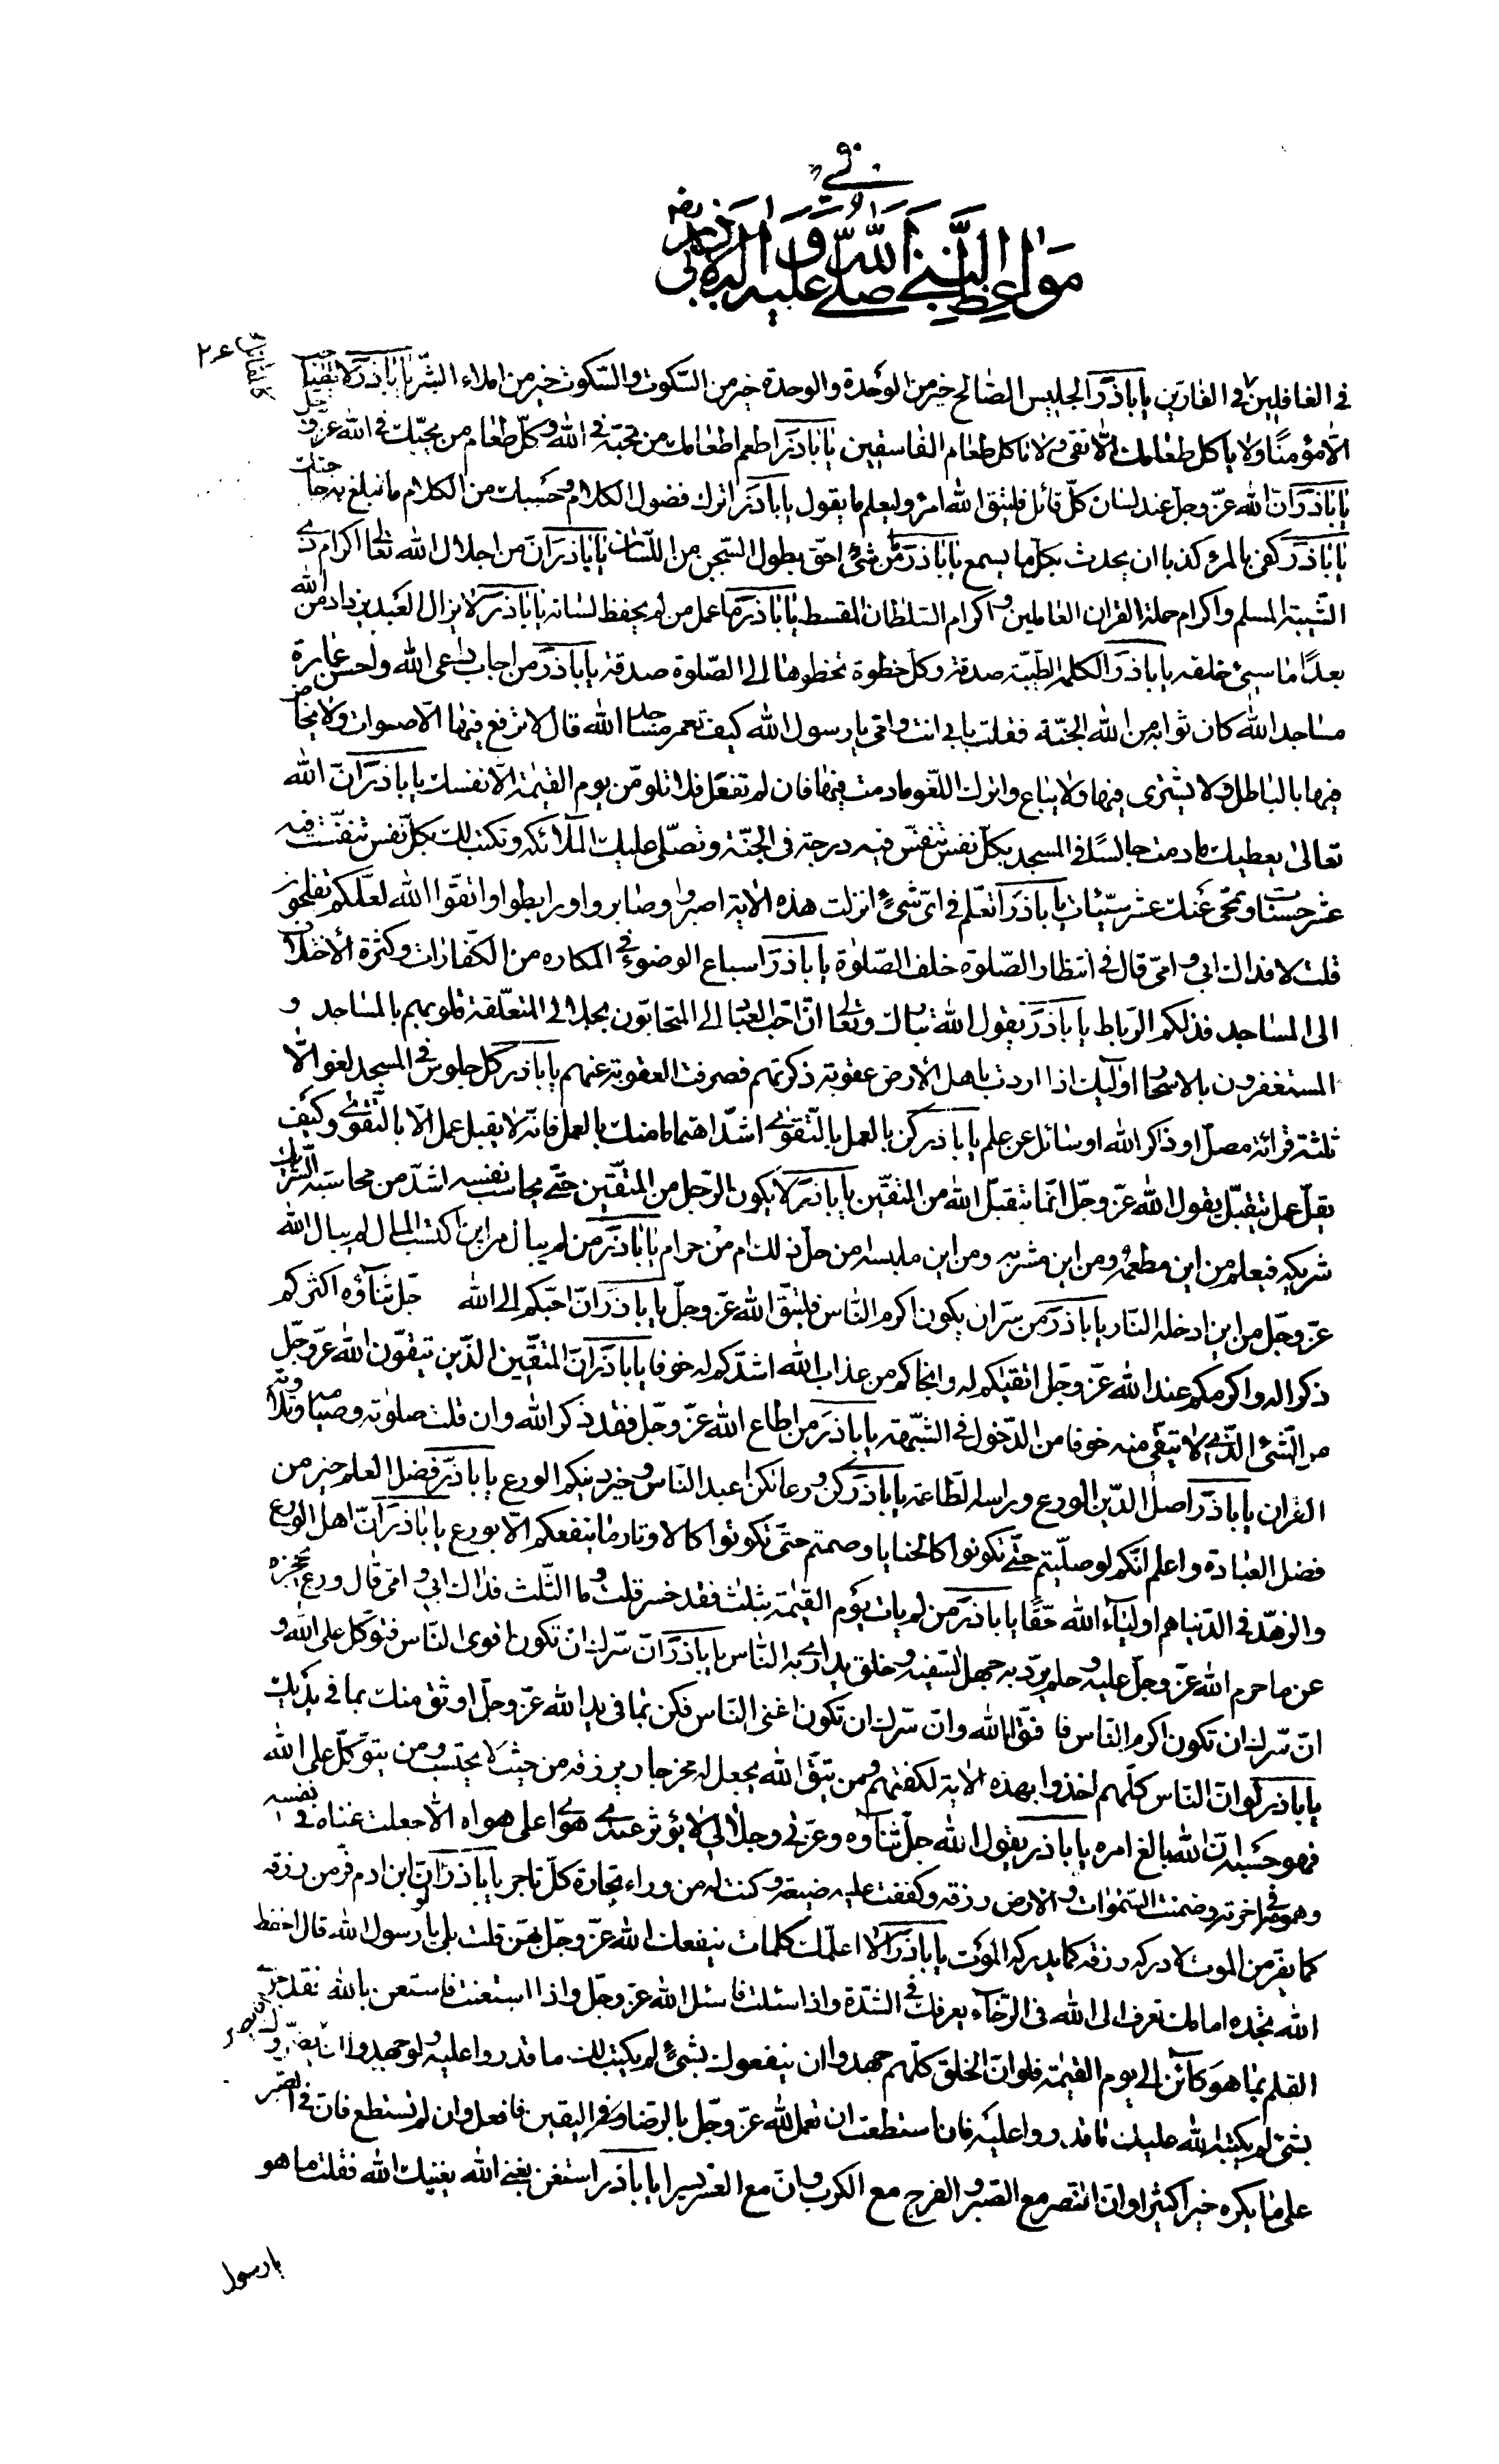 في
مواعظ النبي صلى الله عليه واله لابي ذر رض
٢٤
كالمقاتل
في الغافلين في الفارين يا باذر الجليس الصالح خير من الوحدة والوحدة خير من السكوت والسكوت خير من املاء الشر يا باذر لا تصاحب
الا مؤمنا ولا ياكل طعامك الا تقي ولا تاكل طعام الفاسقين يا باذر اطعم طعامك من تحبه في الله وكل طعام من يحبك في الله عز و جل
يا باذر ان الله عز وجل عند لسان كل قائل فليتق الله امرء وليعلم ما يقول يا باذر اترك فضول الكلام وحسبك من الكلام ما تبلغ به حاجتك
يا باذر كفى بالمرء كذبا ان يحدث بكل ما يسمع يا باذر ما من شئ احق بطول السجن من اللسان يا باذر ان من اجلال الله تعالى اكرام ذي
الشيبة المسلم واكرام حملة القران العاملين و اكرام السلطان المقسط يا باذر ما عمل من لم يحفظ لسانه يا باذر لا يزال العبد يزداد من الله
بعدا ما سيئ خلقه يا باذر الكلمة الطيبة صدقة وكل خطوة تخطوها الى الصلوة صدقة يا باذر من اجاب داعي الله واحسن عمارة
مساجد الله كان ثوابه من الله الجنة فقلت بابي انت وامي يا رسول الله كيف تعمر مساجد الله قال لا ترفع فيها الاصوات ولا يخاض
فيها بالباطل ولا يشترى فيها ولا يباع واترك اللغو مادمت فيها فان لم تفعل فلا تلومن يوم القيمة الا نفسك يا باذر ان الله
تعالى يعطيك مادمت جالسا في المسجد بكل نفس تنفس فيه درجة في الجنة وتصلي عليك الملائكة وتكتب لك بكل نفس تنفست فيه
عشر حسنات و تمحى عنك عشر سيئات يا باذر اتعلم في اي شئ انزلت هذه الاية اصبروا وصابروا ورابطوا واتقوا الله لعلكم تفلحون
قلت لا فداك ابي و امي قال في انتظار الصلوة خلف الصلوة يا باذر اسباغ الوضوء في المكاره من الكفارات وكثرة الاختلاف
الى المساجد فذلكم الرباط يا باذر يقول الله تبارك وتعالى ان احب العباد الي المتحابون بجلالي المتعلقة قلوبهم بالمساجد و
المستغفرون بالاسحار اولئك اذا اردت باهل الارض عقوبة ذكرتهم فصرفت العقوبة عنهم يا باذر كل جلوس في المسجد لغو الا
ثلثة قرائة مصل او ذاكر الله او سائل عن علم يا باذر كن بالعمل بالتقوى اشد اهتماما منك بالعمل فانه لا يقبل عمل الا بالتقوى وكيف
يقل عمل يتقبل يقول الله عز وجل انما يتقبل الله من المتقين يا باذر لا يكون الرجل من المتقين حتى يحاسب نفسه اشد من محاسبة الشريك
شريكه فيعلم من اين مطعمه ومن اين مشربه ومن اين ملبسه من حل ذلك ام من حرام يا باذر من لم يبال من اين اكتسب المال لم يبال الله
عز وجل من اين ادخله النار يا باذر من سره ان يكون اكرم الناس فليتق الله عز وجل يا باذر ان احبكم الى الله جل ثناؤه اكثركم
ذكرا له واكرمكم عند الله عز وجل اتقيكم له وانجاكم من عذاب الله اشدكم له خوفا يا باذر ان المتقين الذين يتقون الله عز وجل
من الشئ الذي لا يتقى منه خوفا من الدخول في الشبهة يا باذر من اطاع الله عز وجل فقد ذكر الله وان قلت صلوته وصيامه وتلاوته
القران يا باذر اصل الدين الورع وراسه الطاعة يا باذر كن ورعا تكن اعبد الناس وخير دينكم الورع يا باذر فضل العلم خير من
فضل العبادة واعلم انكم لو صليتم حتى تكونوا كالحنايا وصمتم حتى تكونوا كالاوتار ما ينفعكم الا بورع يا باذر ان اهل الورع
والزهد في الدنيا هم اولياء الله حقا يا باذر من لم يات يوم القيمة بثلث فقد خسر قلت و ما الثلث فداك ابي و امي قال ورع يحجزه
عن ما حرم الله عز وجل عليه و حلم يرد به جهل السفيه و خلق يداري به الناس يا باذر ان سرك ان تكون اقوى الناس فتوكل على الله و
ان سرك ان تكون اكرم الناس فاتق الله وان سرك ان تكون اغنى الناس فكن بما في يد الله عز وجل اوثق منك بما في يديك
يا باذر لو ان الناس كلهم اخذوا بهذه الاية لكفتهم ومن يتق الله يجعل له مخرجا ويرزقه من حيث لا يحتسب ومن يتوكل على الله
فهو حسبه ان الله بالغ امره يا باذر يقول الله جل ثناؤه وعزتي وجلالي لا يؤثر عبدي هواي على هواه الا جعلت غناه في نفسه
وهمومه في اخرته وضمنت السموات و الارض رزقه وكففت عليه ضيعته و كنت له من وراء تجارة كل تاجر يا باذر لو ان ابن ادم فر من رزقه
كما يفر من الموت لادركه رزقه كما يدركه الموت يا باذر الا اعلمك كلمات ينفعك الله عز وجل بهن قلت بلى يا رسول الله قال احفظ
الله تجده امامك تعرف الى الله في الرخاء يعرفك في الشدة واذا سئلت فاسئل الله عز وجل واذا استعنت فاستعن بالله فقد جرى
القلم بما هو كائن الى يوم القيمة فلو ان الخلق كلهم جهدوا ان ينفعوك بشئ لم يكتب لك ما قدروا عليه و لو جهدوا ان يضروك
بشئ لم يكتبه الله عليك ما قدروا عليه فان استطعت ان تعمل لله عز وجل بالرضا في اليقين فافعل وان لم تستطع فان في الصبر
على ما يكره خيرا كثيرا وان النصر مع الصبر و الفرج مع الكرب وان مع العسر يسرا يا باذر استغن بغنى الله يغنيك الله فقلت ما هو
يا رسول